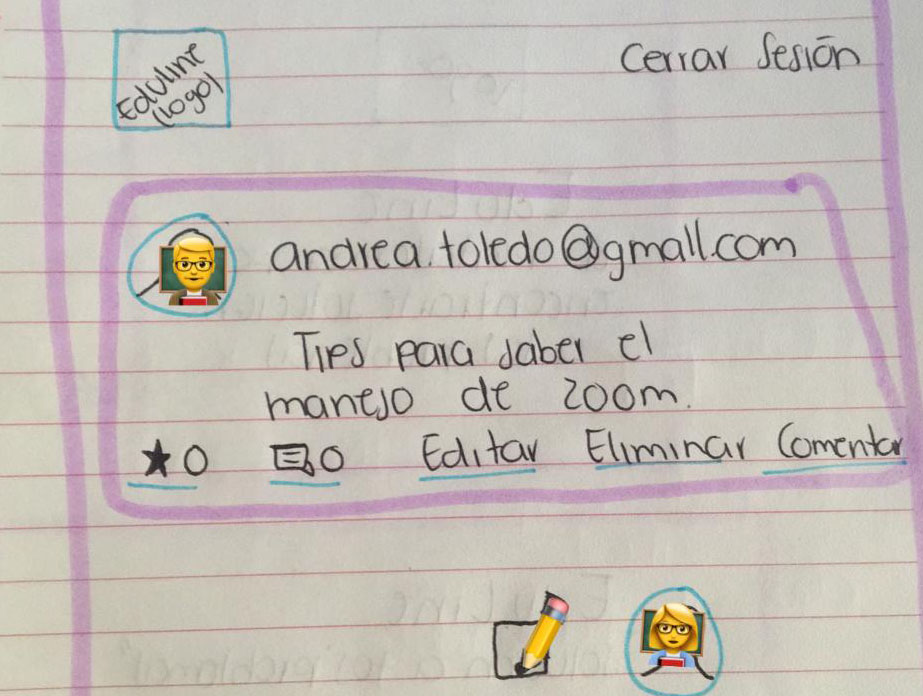 EduLine
(logo)
Cerrar Sesión
andrea.toledo@gmall.com
Tips para saber el
manejo de zoom.
★0 0 Editar Eliminar Comentar